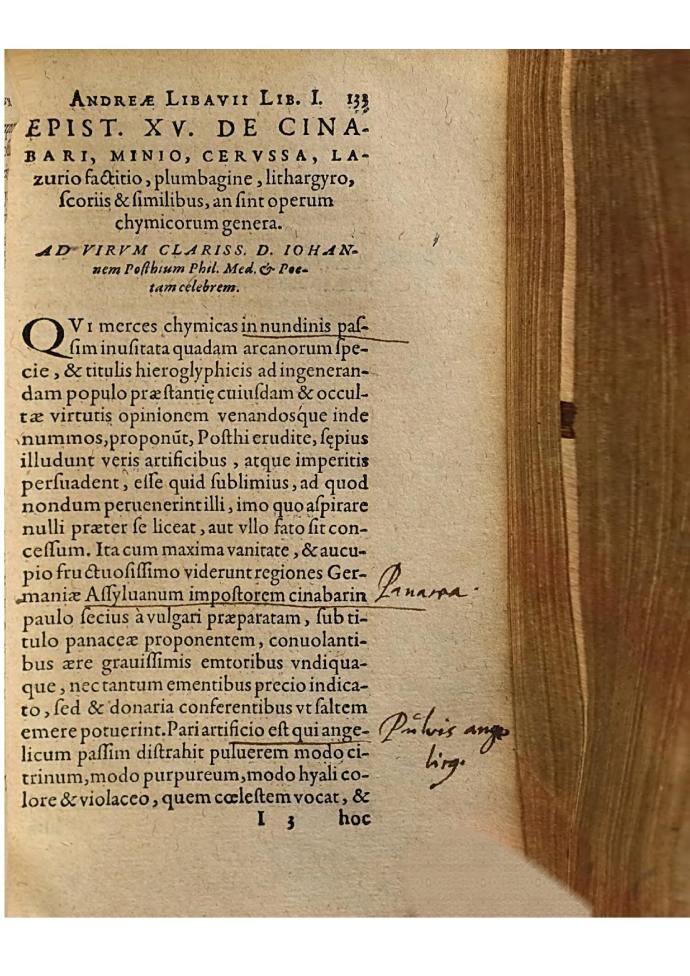 ANDREÆ LIBAVII LIB. I. 133
EPIST. XV. DE CINA-
BARI, MINIO, CERVSSA, LA-
zurio factitio, plumbagine, lithargyro,
ſcoriis & ſimilibus, an ſint operum
chymicorum genera.
AD VIRVM CLARISS. D. IOHAN-
nem Poſthium Phil. Med. & Poe-
tam celebrem.
QVI merces chymicas in nundinis paſ-
ſim inuſitata quadam arcanorum ſpe-
cie, & titulis hieroglyphicis ad ingeneran-
dam populo præſtantię cuiuſdam & occul-
tæ virtutis opinionem venandosque inde
nummos, proponūt, Poſthi erudite, ſępius
illudunt veris artificibus, atque imperitis
perſuadent, eſſe quid ſublimius, ad quod
nondum peruenerint illi, imo quo aſpirare
nulli præter ſe liceat, aut vllo fato ſit con-
ceſſum. Ita cum maxima vanitate, & aucu-
pio fructuoſiſſimo viderunt regiones Ger-
maniæ Aſſyluanum impoſtorem cinabarin
paulo ſecius à vulgari præparatam, ſub ti-
tulo panaceæ proponentem, conuolanti-
bus ære grauiſſimis emtoribus vndiqua-
que, nec tantum ementibus precio indica-
to, ſed & donaria conferentibus vt ſaltem
emere potuerint. Pari artificio eſt qui ange-
licum paſſim diſtrahit puluerem modo ci-
trinum, modo purpureum, modo hyali co-
lore & violaceo, quem cœleſtem vocat, &
I 3 hoc
Pulvis ange